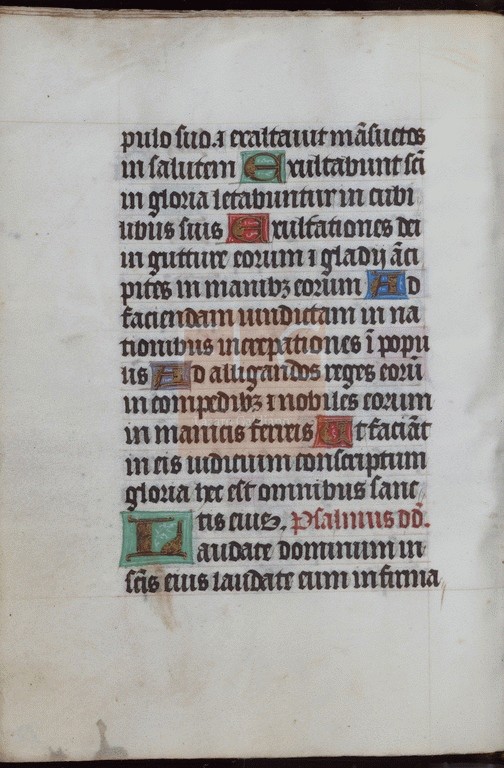 pulo suo. ⁊ exaltauit mãsuetos
in salutem Exultabunt sc̃i
in gloria letabuntur in cubi
libus suis Exultationes dei
in gutture eorum ⁊ gladij ãci
pites in manibꝫ eorum Ad
faciendam uindictam in na
tionibus increpationes ĩ popu
lis Ad alligandos reges eorũ
in compedibꝫ ⁊ nobiles eorum
in manicis ferreis Ut faciãt
in eis iudicium conscriptum
gloria hec est omnibus sanc
tis eius. Psalmus dd̃.
Laudate dominum in
sc̃is eius laudate eum in firma